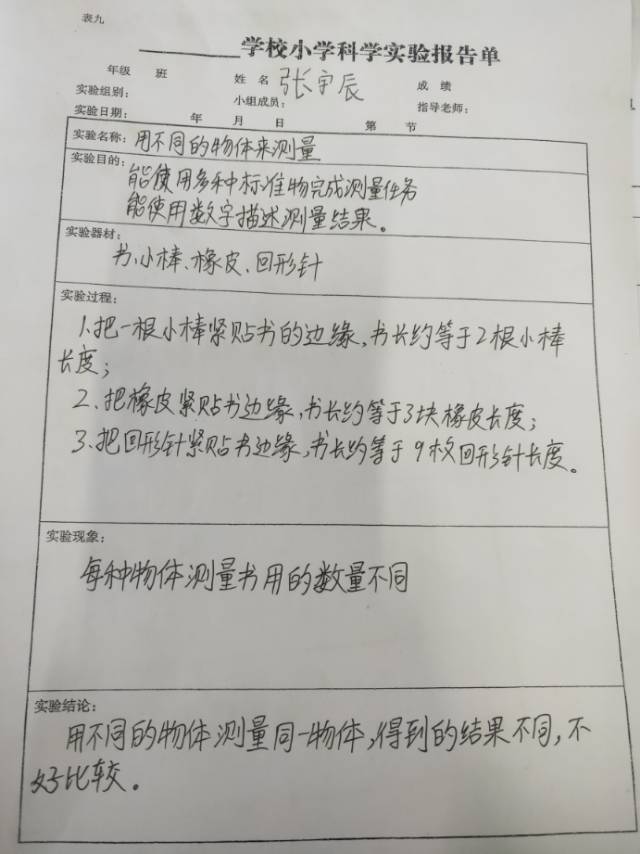 表九
学校小学科学实验报告单
年级 班 姓名 张宇辰 成绩
实验组别： 小组成员： 指导老师：
实验日期： 年 月 日 第 节
实验名称：用不同的物体来测量
实验目的：能使用多种标准物完成测量任务
能使用数字描述测量结果。
实验器材：
书、小棒、橡皮、回形针
实验过程：
1.把一根小棒紧贴书的边缘,书长约等于2根小棒
长度;
2、把橡皮紧贴书边缘,书长约等于3块橡皮长度;
3、把回形针紧贴书边缘,书长约等于9枚回形针长度。
实验现象：
每种物体测量书用的数量不同
实验结论：
用不同的物体测量同一物体,得到的结果不同,不
好比较。